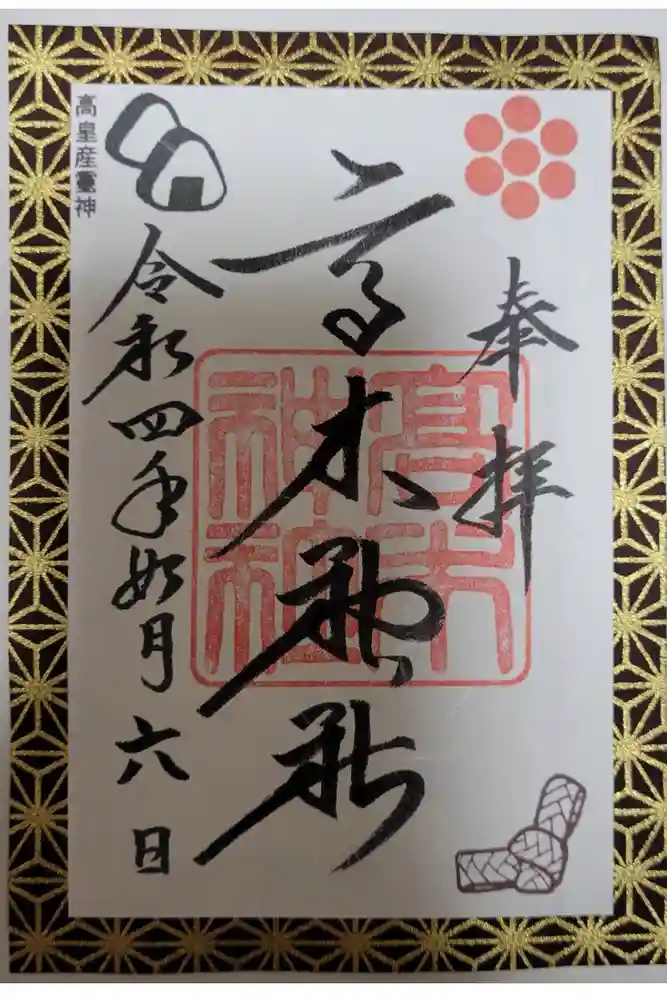 奉拝
高木神社
高木神社
令和四年如月六日
高皇産霊神